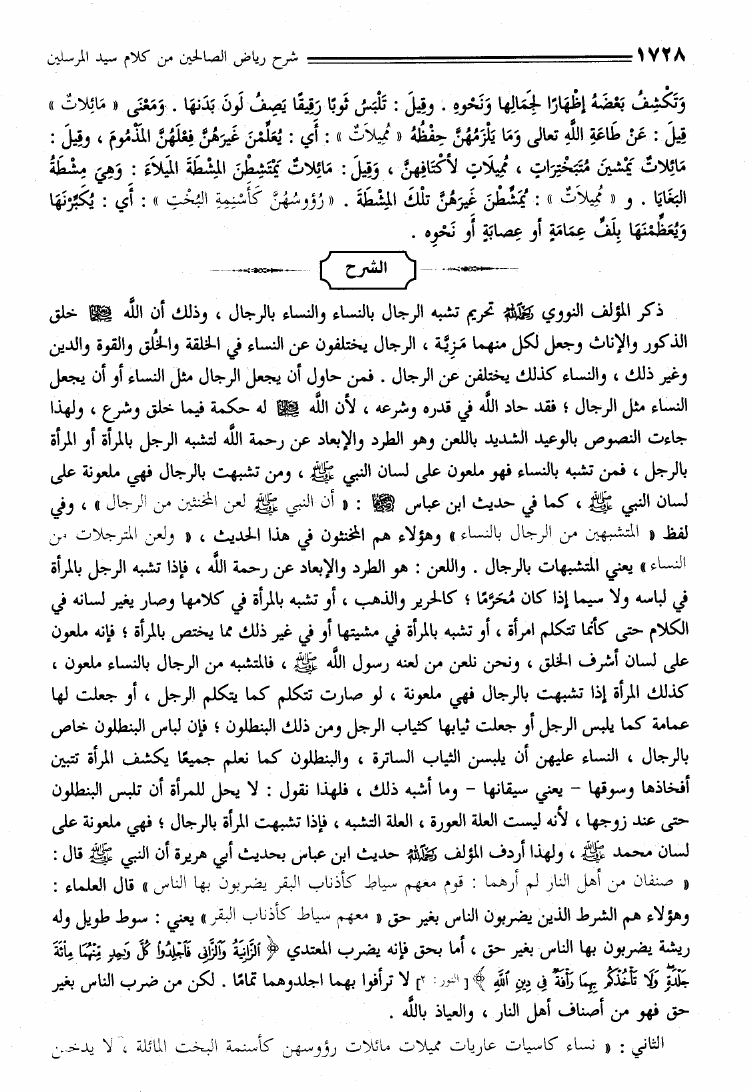 ١٧٢٨ شرح رياض الصالحين من كلام سيد المرسلين
وَتَكْشِفُ بَعْضَهُ إظْهَارًا لِجَمالِها وَنَحْوِهِ . وَقِيلَ : تَلْبَسُ ثَوبًا رَقِيقًا يَصِفُ لَونَ بَدَنِهَا . وَمَعْنَى « مَائِلاتٌ »
قِيلَ : عَنْ طَاعَةِ اللَّهِ تعالى وَمَا يَلْزَمُهُنَّ حِفْظُهُ « مُمِيلاتٌ » : أَي : يُعَلِّمْنَ غَيرَهُنَّ فِعْلَهُنَّ المَذْمُومَ ، وقِيلَ :
مَائِلاتٌ يَمْشينَ مُتَبَخْتِرَاتٍ ، مُمِيلَاتٍ لأكْتَافِهِنَّ ، وَقِيلَ : مَائِلاتٌ يَمْتَشِطْنَ المِشْطَةَ المَيلَاءَ : وَهِيَ مِشْطَةُ
البَغَايَا . و « مُمِيلاتٌ » : يُمَشِّطْنَ غَيرَهُنَّ تلْكَ المِشْطَةَ . « رُؤُوسُهُنَّ كَأسْنِمَةِ البُخْتِ » : أي : يُكَبِّرْنَهَا
وَيُعَظِّمْنَهَا بِلَفِّ عِمَامَةٍ أو عِصابَةٍ أَو نَحْوِهِ .
الشرح
ذكر المؤلف النووي رحمه الله تحريم تشبه الرجال بالنساء والنساء بالرجال ، وذلك أن اللَّه خلق
الذكور والإناث وجعل لكل منهما مَزِيَّة ، الرجال يختلفون عن النساء في الخلقة والخُلق والقوة والدين
وغير ذلك ، والنساء كذلك يختلفن عن الرجال . فمن حاول أن يجعل الرجال مثل النساء أو أن يجعل
النساء مثل الرجال ؛ فقد حاد اللَّه في قدره وشرعه ، لأن اللَّه له حكمة فيما خلق وشرع ، ولهذا
جاءت النصوص بالوعيد الشديد باللعن وهو الطرد والإبعاد عن رحمة اللَّه لتشبه الرجل بالمرأة أو المرأة
بالرجل ، فمن تشبه بالنساء فهو ملعون على لسان النبي ﷺ ، ومن تشبهت بالرجال فهي ملعونة على
لسان النبي ﷺ ، كما في حديث ابن عباس : « أن النبي ﷺ لعن المخنثين من الرجال » ، وفي
لفظ « المتشبهين من الرجال بالنساء » وهؤلاء هم المخنثون في هذا الحديث ، « ولعن المترجلات من
النساء » يعني المتشبهات بالرجال . واللعن : هو الطرد والإبعاد عن رحمة اللَّه ، فإذا تشبه الرجل بالمرأة
في لباسه ولا سيما إذا كان مُحَرَّمًا ؛ كالحرير والذهب ، أو تشبه بالمرأة في كلامها وصار يغير لسانه في
الكلام حتى كأنما تتكلم امرأة ، أو تشبه بالمرأة في مشيتها أو في غير ذلك مما يختص بالمرأة ؛ فإنه ملعون
على لسان أشرف الخلق ، ونحن نلعن من لعنه رسول اللَّه ﷺ ، فالمتشبه من الرجال بالنساء ملعون ،
كذلك المرأة إذا تشبهت بالرجال فهي ملعونة ، لو صارت تتكلم كما يتكلم الرجل ، أو جعلت لها
عمامة كما يلبس الرجل أو جعلت ثيابها كثياب الرجل ومن ذلك البنطلون ؛ فإن لباس البنطلون خاص
بالرجال ، النساء عليهن أن يلبسن الثياب الساترة ، والبنطلون كما نعلم جميعًا يكشف المرأة تتبين
أفخاذها وسوقها - يعني سيقانها - وما أشبه ذلك ، فلهذا نقول : لا يحل للمرأة أن تلبس البنطلون
حتى عند زوجها ، لأنه ليست العلة العورة ، العلة التشبه ، فإذا تشبهت المرأة بالرجال ؛ فهي ملعونة على
لسان محمد ﷺ ، ولهذا أردف المؤلف رحمه الله حديث ابن عباس بحديث أبي هريرة أن النبي ﷺ قال :
« صنفان من أهل النار لم أرهما : قوم معهم سياط كأذناب البقر يضربون بها الناس » قال العلماء :
وهؤلاء هم الشرط الذين يضربون الناس بغير حق « معهم سياط كأذناب البقر » يعني : سوط طويل وله
ريشة يضربون بها الناس بغير حق ، أما بحق فإنه يضرب المعتدي ﴿ الزَّانِيَةُ وَالزَّانِي فَاجْلِدُوا كُلَّ وَاحِدٍ مِّنْهُمَا مِائَةَ
جَلْدَةٍ وَلَا تَأْخُذْكُم بِهِمَا رَأْفَةٌ فِي دِينِ اللَّهِ ﴾ [ النور : ٢ ] لا ترأفوا بهما اجلدوهما تمامًا . لكن من ضرب الناس بغير
حق فهو من أصناف أهل النار ، والعياذ باللَّه .
الثاني : « نساء كاسيات عاريات مميلات مائلات رؤوسهن كأسنمة البخت المائلة ، لا يدخلن